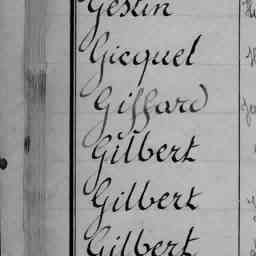 Gestin
Gicquel
Giffard
Gilbert
Gilbert
Gilbert